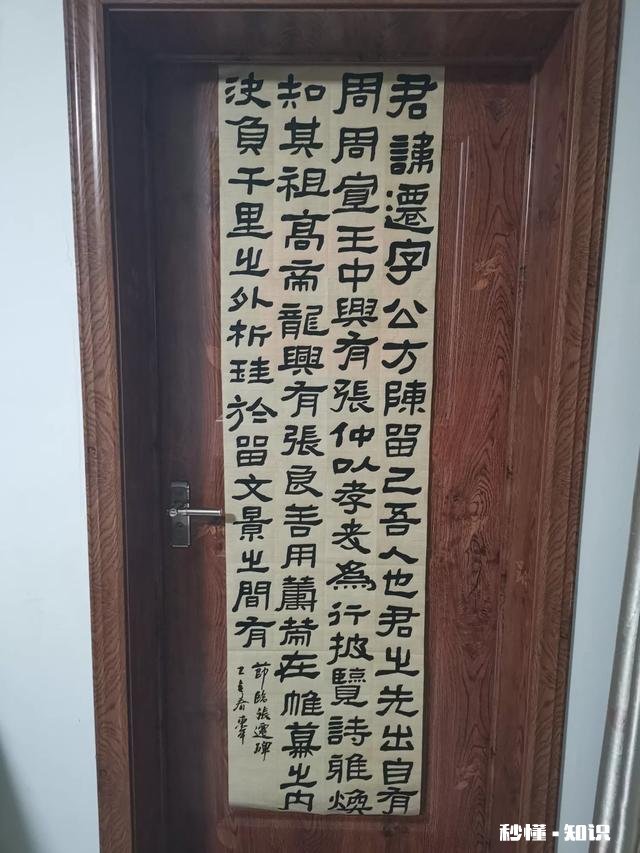 君諱遷字公方陳留己吾人也君之先出自有
周周宣王中興有張仲以孝友為行披覽詩雅煥
知其祖高帝龍興有張良善用籌策在帷幕之內
決負千里之外析珪於留文景之間有
節臨張遷碑
春
秒懂-知识